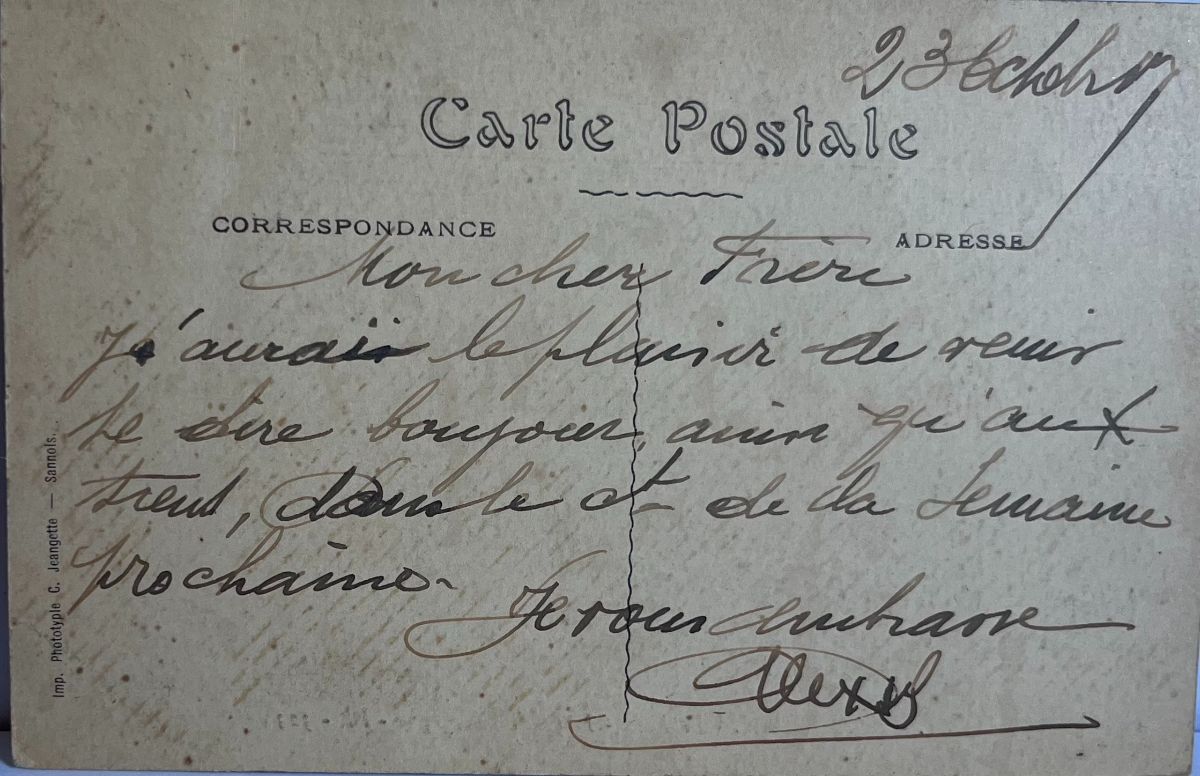 23 Octobre 17
Carte Postale
CORRESPONDANCE
ADRESSE
Mon cher Frère
J'aurais le plaisir de venir
te dire bonjour, ainsi qu'aux
tiens, dans le ct de la semaine
prochaine.
Je vous embrasse
Alexis
Imp. Phototypie C. Jeangette — Sannois.